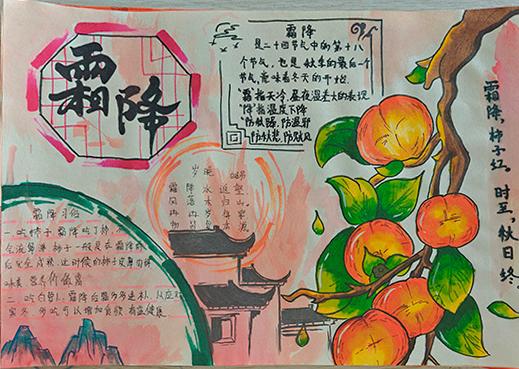 霜降
霜降
是二十四节气中的第十八
个节气，也是秋季的最后一个
节气，意味着冬天的开始
"霜"指天冷、昼夜温差大的表现
"降"指温度下降
防秋燥、防湿邪
防秋愁、防贼风
霜降，柿子红。时至，秋日终
霜降水返壑
风落木归山
冉冉岁
霜降习俗
一、吃柿子 霜降吃丁柿，不
会流鼻涕 柿子一般是在霜降前
后完全成熟，这时候的柿子皮薄肉鲜
味美 营养价值高
二、吃白萝卜
实冬 多吃可以增加食欲 有益健康